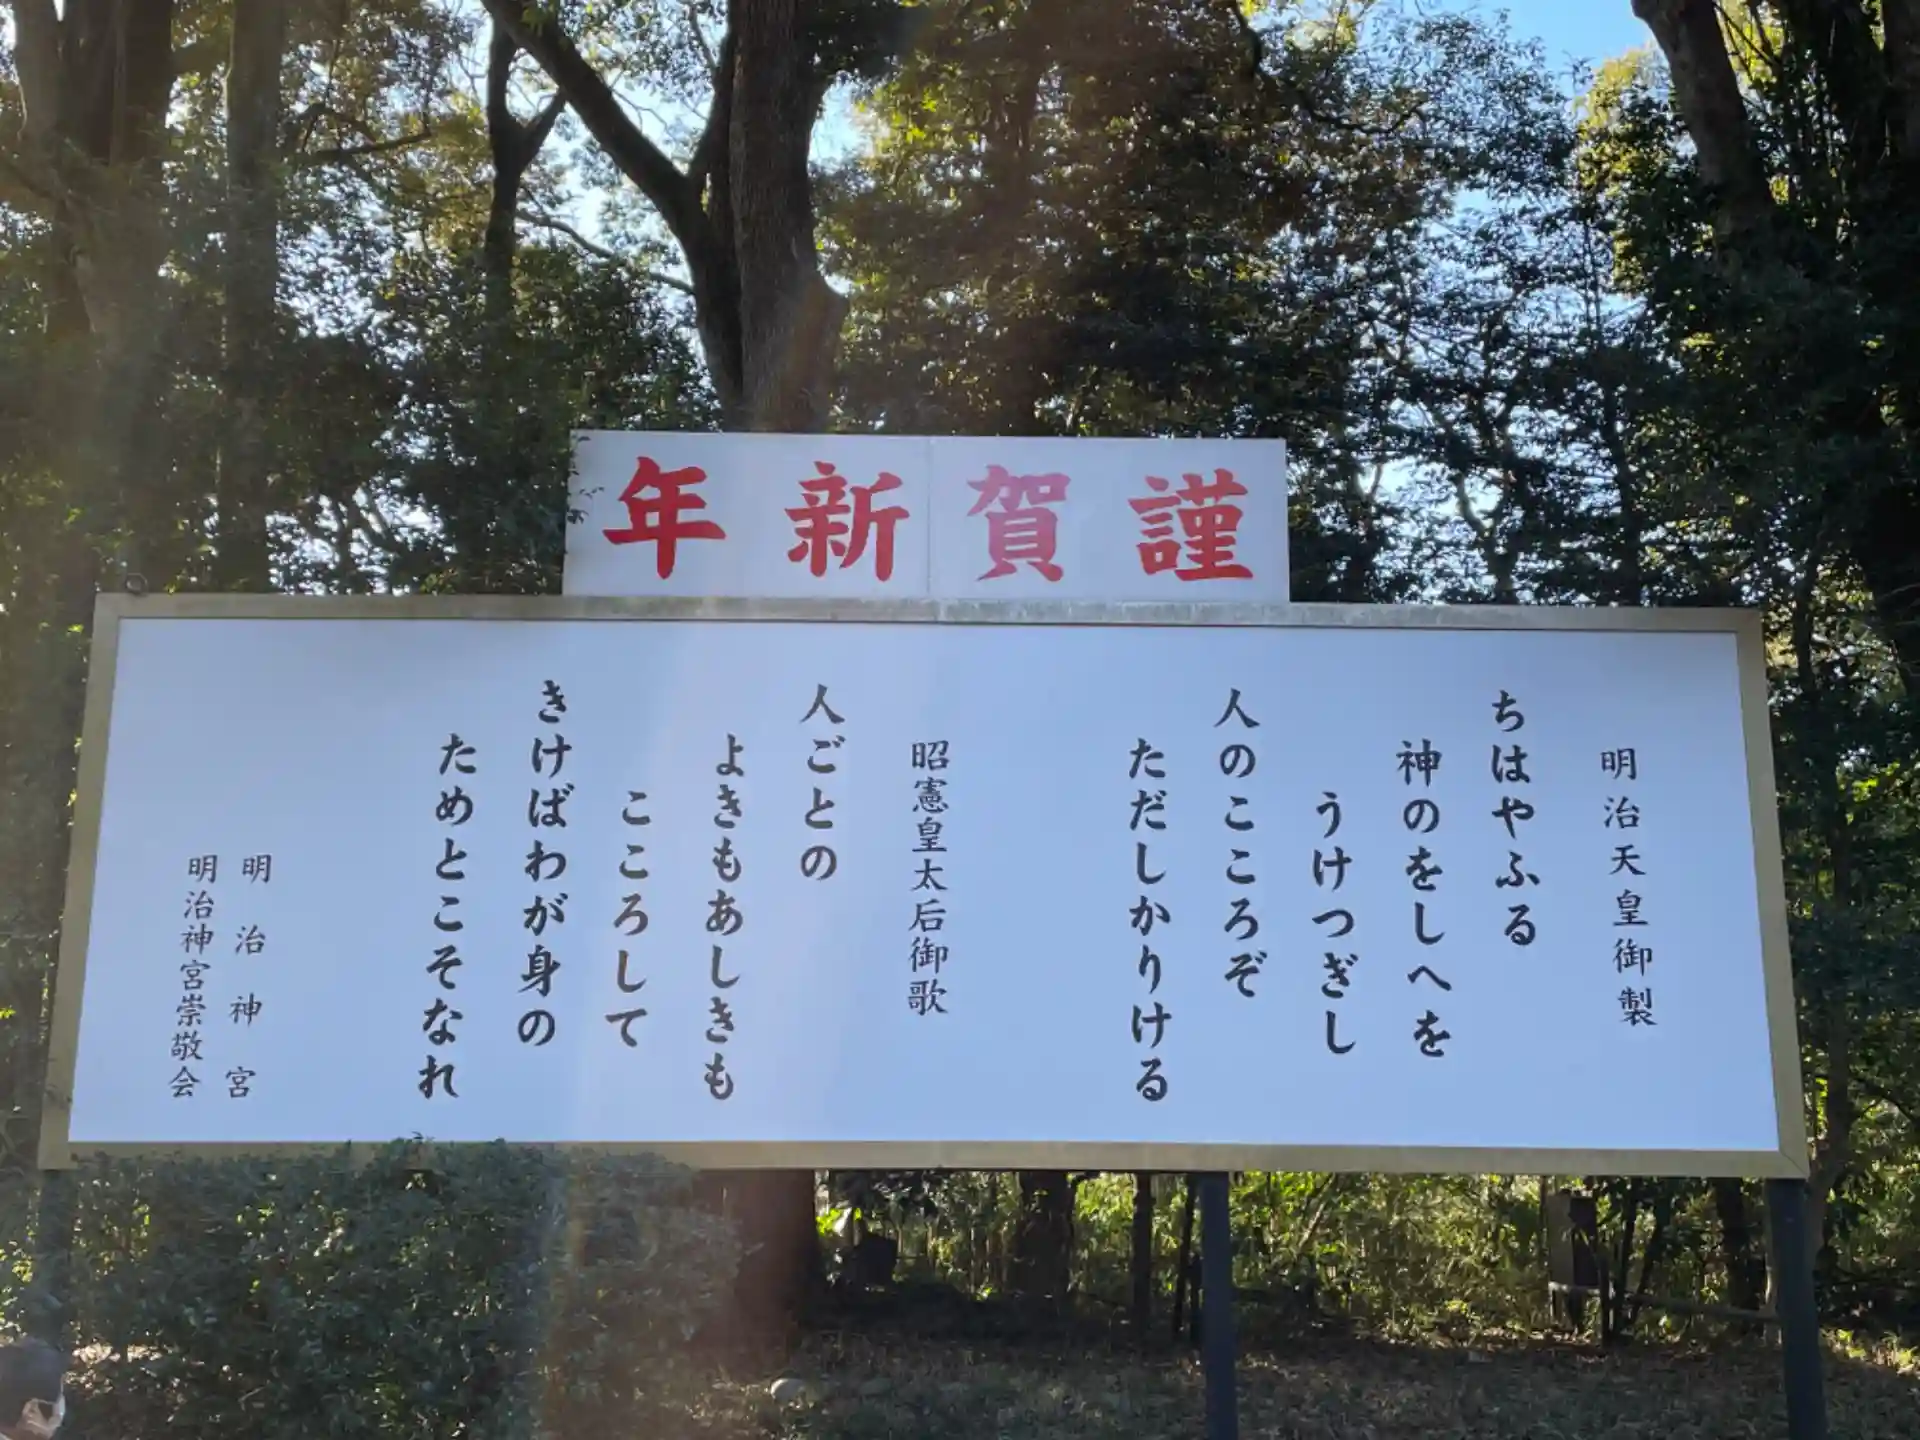 謹賀新年
明治天皇御製
ちはやふる
神のをしへを
うけつぎし
人のこころぞ
ただしかりける
昭憲皇太后御歌
人ごとの
よきもあしきも
こころして
きけばわが身の
ためとこそなれ
明治神宮
明治神宮崇敬会